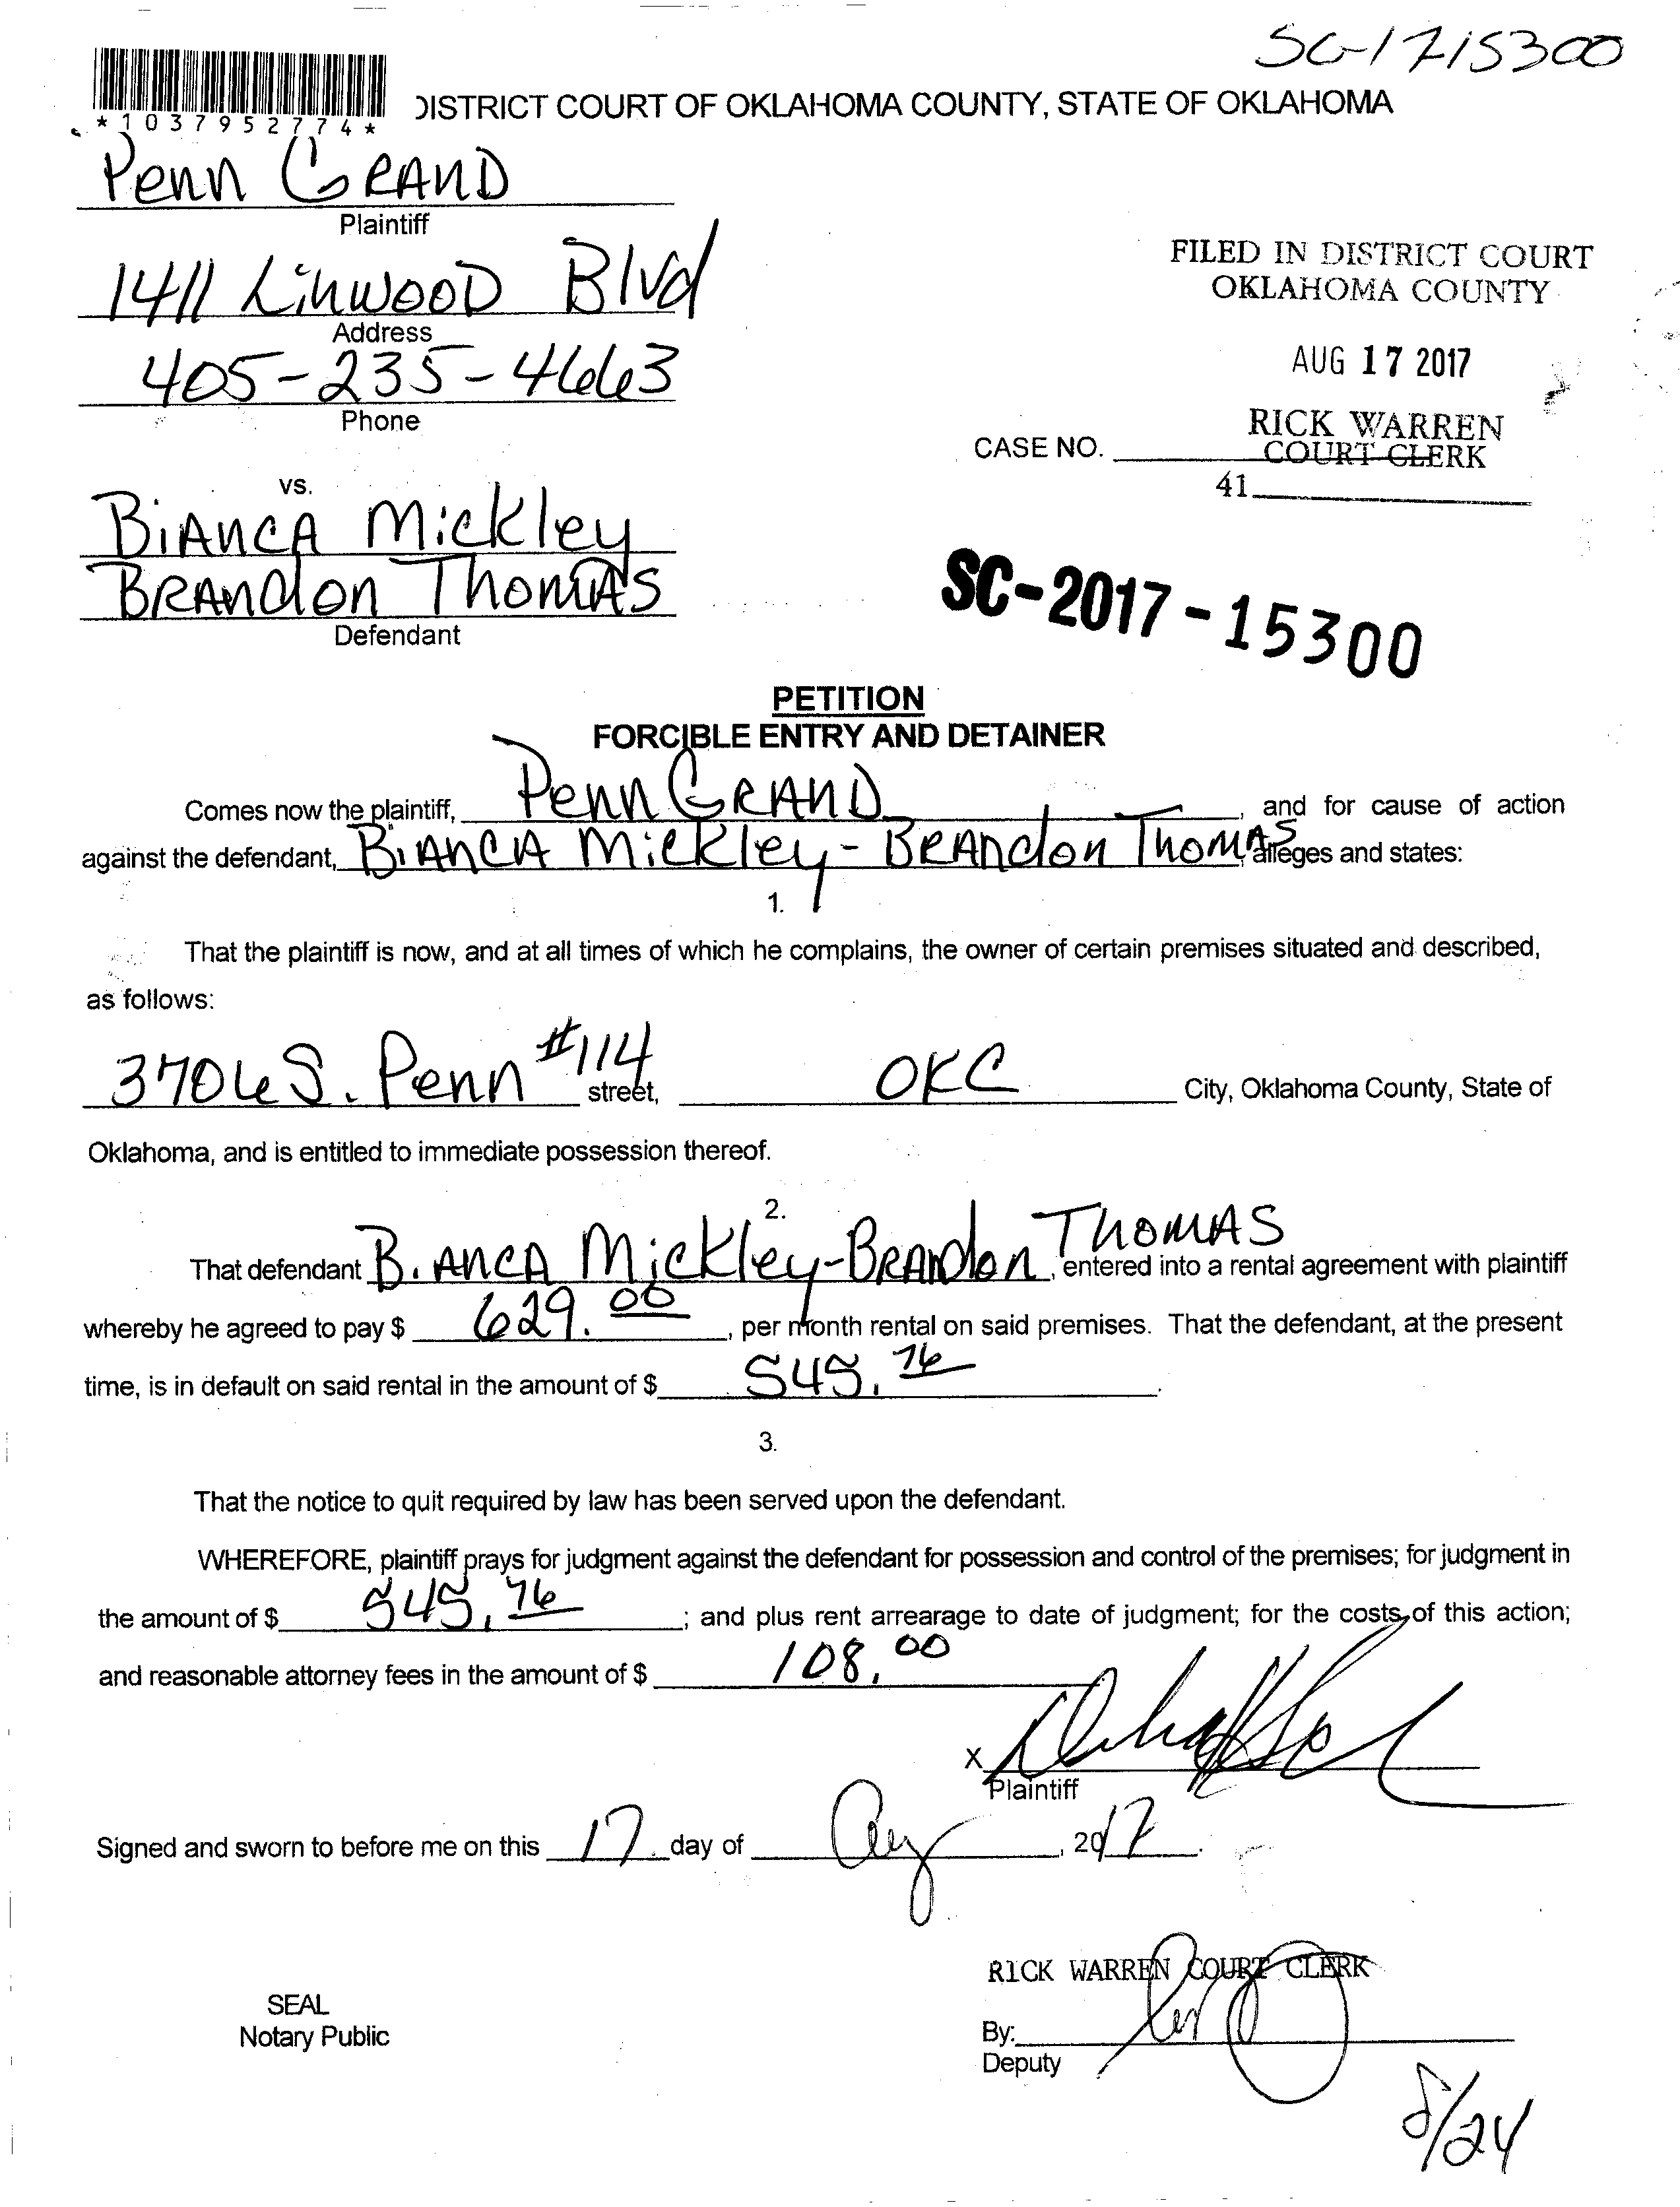 SC-1715300
*1037952774*
DISTRICT COURT OF OKLAHOMA COUNTY, STATE OF OKLAHOMA
Penn GRAND
Plaintiff
1411 LinwooD Blvd
Address
405-235-4663
Phone
FILED IN DISTRICT COURT
OKLAHOMA COUNTY
AUG 17 2017
RICK WARREN
COURT CLERK
CASE NO.
41
vs.
BiANCA Mickley
BRANdon ThomAS
Defendant
SC-2017-15300
PETITION
FORCIBLE ENTRY AND DETAINER
Comes now the plaintiff, Penn GRAND, and for cause of action
against the defendant, BiANCA Mickley - BRANdon ThomAS, alleges and states:
1.
That the plaintiff is now, and at all times of which he complains, the owner of certain premises situated and described,
as follows:
3706 S. Penn #114 street, OKC City, Oklahoma County, State of
Oklahoma, and is entitled to immediate possession thereof.
2.
That defendant BiANCA Mickley-BRANdon THOMAS, entered into a rental agreement with plaintiff
whereby he agreed to pay $ 629.00, per month rental on said premises. That the defendant, at the present
time, is in default on said rental in the amount of $ 545.76.
3.
That the notice to quit required by law has been served upon the defendant.
WHEREFORE, plaintiff prays for judgment against the defendant for possession and control of the premises; for judgment in
the amount of $ 545.76; and plus rent arrearage to date of judgment; for the costs of this action;
and reasonable attorney fees in the amount of $ 108.00
X
Plaintiff
Signed and sworn to before me on this 17 day of Aug, 2017.
RICK WARREN COURT CLERK
SEAL
Notary Public
By:
Deputy
8/24